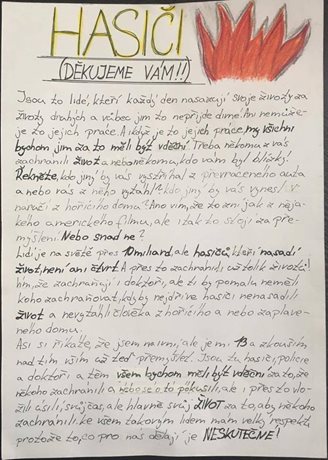 HASIČI
(DĚKUJEME VÁM!!)
Jsou to lidé, kteří každý den nasazují svoje životy za
životy druhých a vůbec jim to nepřijde divné. Ani nemůže-
je to jejich práce. A i když je to jejich práce my všichni
bychom jim za to měli být vděční. Třeba někomu z vás
zachránili život a nebo někomu, kdo vám byl blízký.
Řekněte, kdo jiný by vás vystříhal z převráceného auta
a nebo vás z něho vytáhl? kdo jiný by vás vynesl v
náručí z hořícího domu? Ano vím, že to zní jak z něja-
kého amerického filmu, ale i tak to stojí za pře-
mýšlení. Nebo snad ne?
Lidí je na světě přes miliard, ale hasičů, kteří nasadí
život, není ani čtvrt. A přes to zachránili už tolik životů!
Vím, že zachraňují i doktoři, ale ti by pomalu neměli
koho zachraňovat, kdyby nejdříve hasiči nenasadili
život a nevytáhli člověka z hořícího a nebo zaplave-
ného domu.
Asi si říkáte, že jsem naivní, ale mi 13 a zkouším
nad tím vším už teď přemýšlet. Jsou tu hasiči, policie
a doktoři a těm všem bychom měli být vděční za to, že
někoho zachránili a nebo se o to pokusili, ale i přes to vlo-
žili úsilí, svůj čas, ale hlavně svůj ŽIVOT za to, aby někoho
zachránili. ke všem takovým lidem mám velký respekt,
protože to, co pro nás dělají je NESKUTEČNÉ!